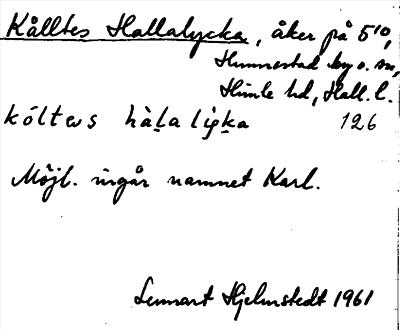 Kålltes Hallalycka, åker på 5¹⁰,
Hunnestad by o. sn,
Himle hd, Hall. l.
kóltəs hàlalỳka 126
Möjl. ingår namnet Karl.
Lennart Hjelmstedt 1961